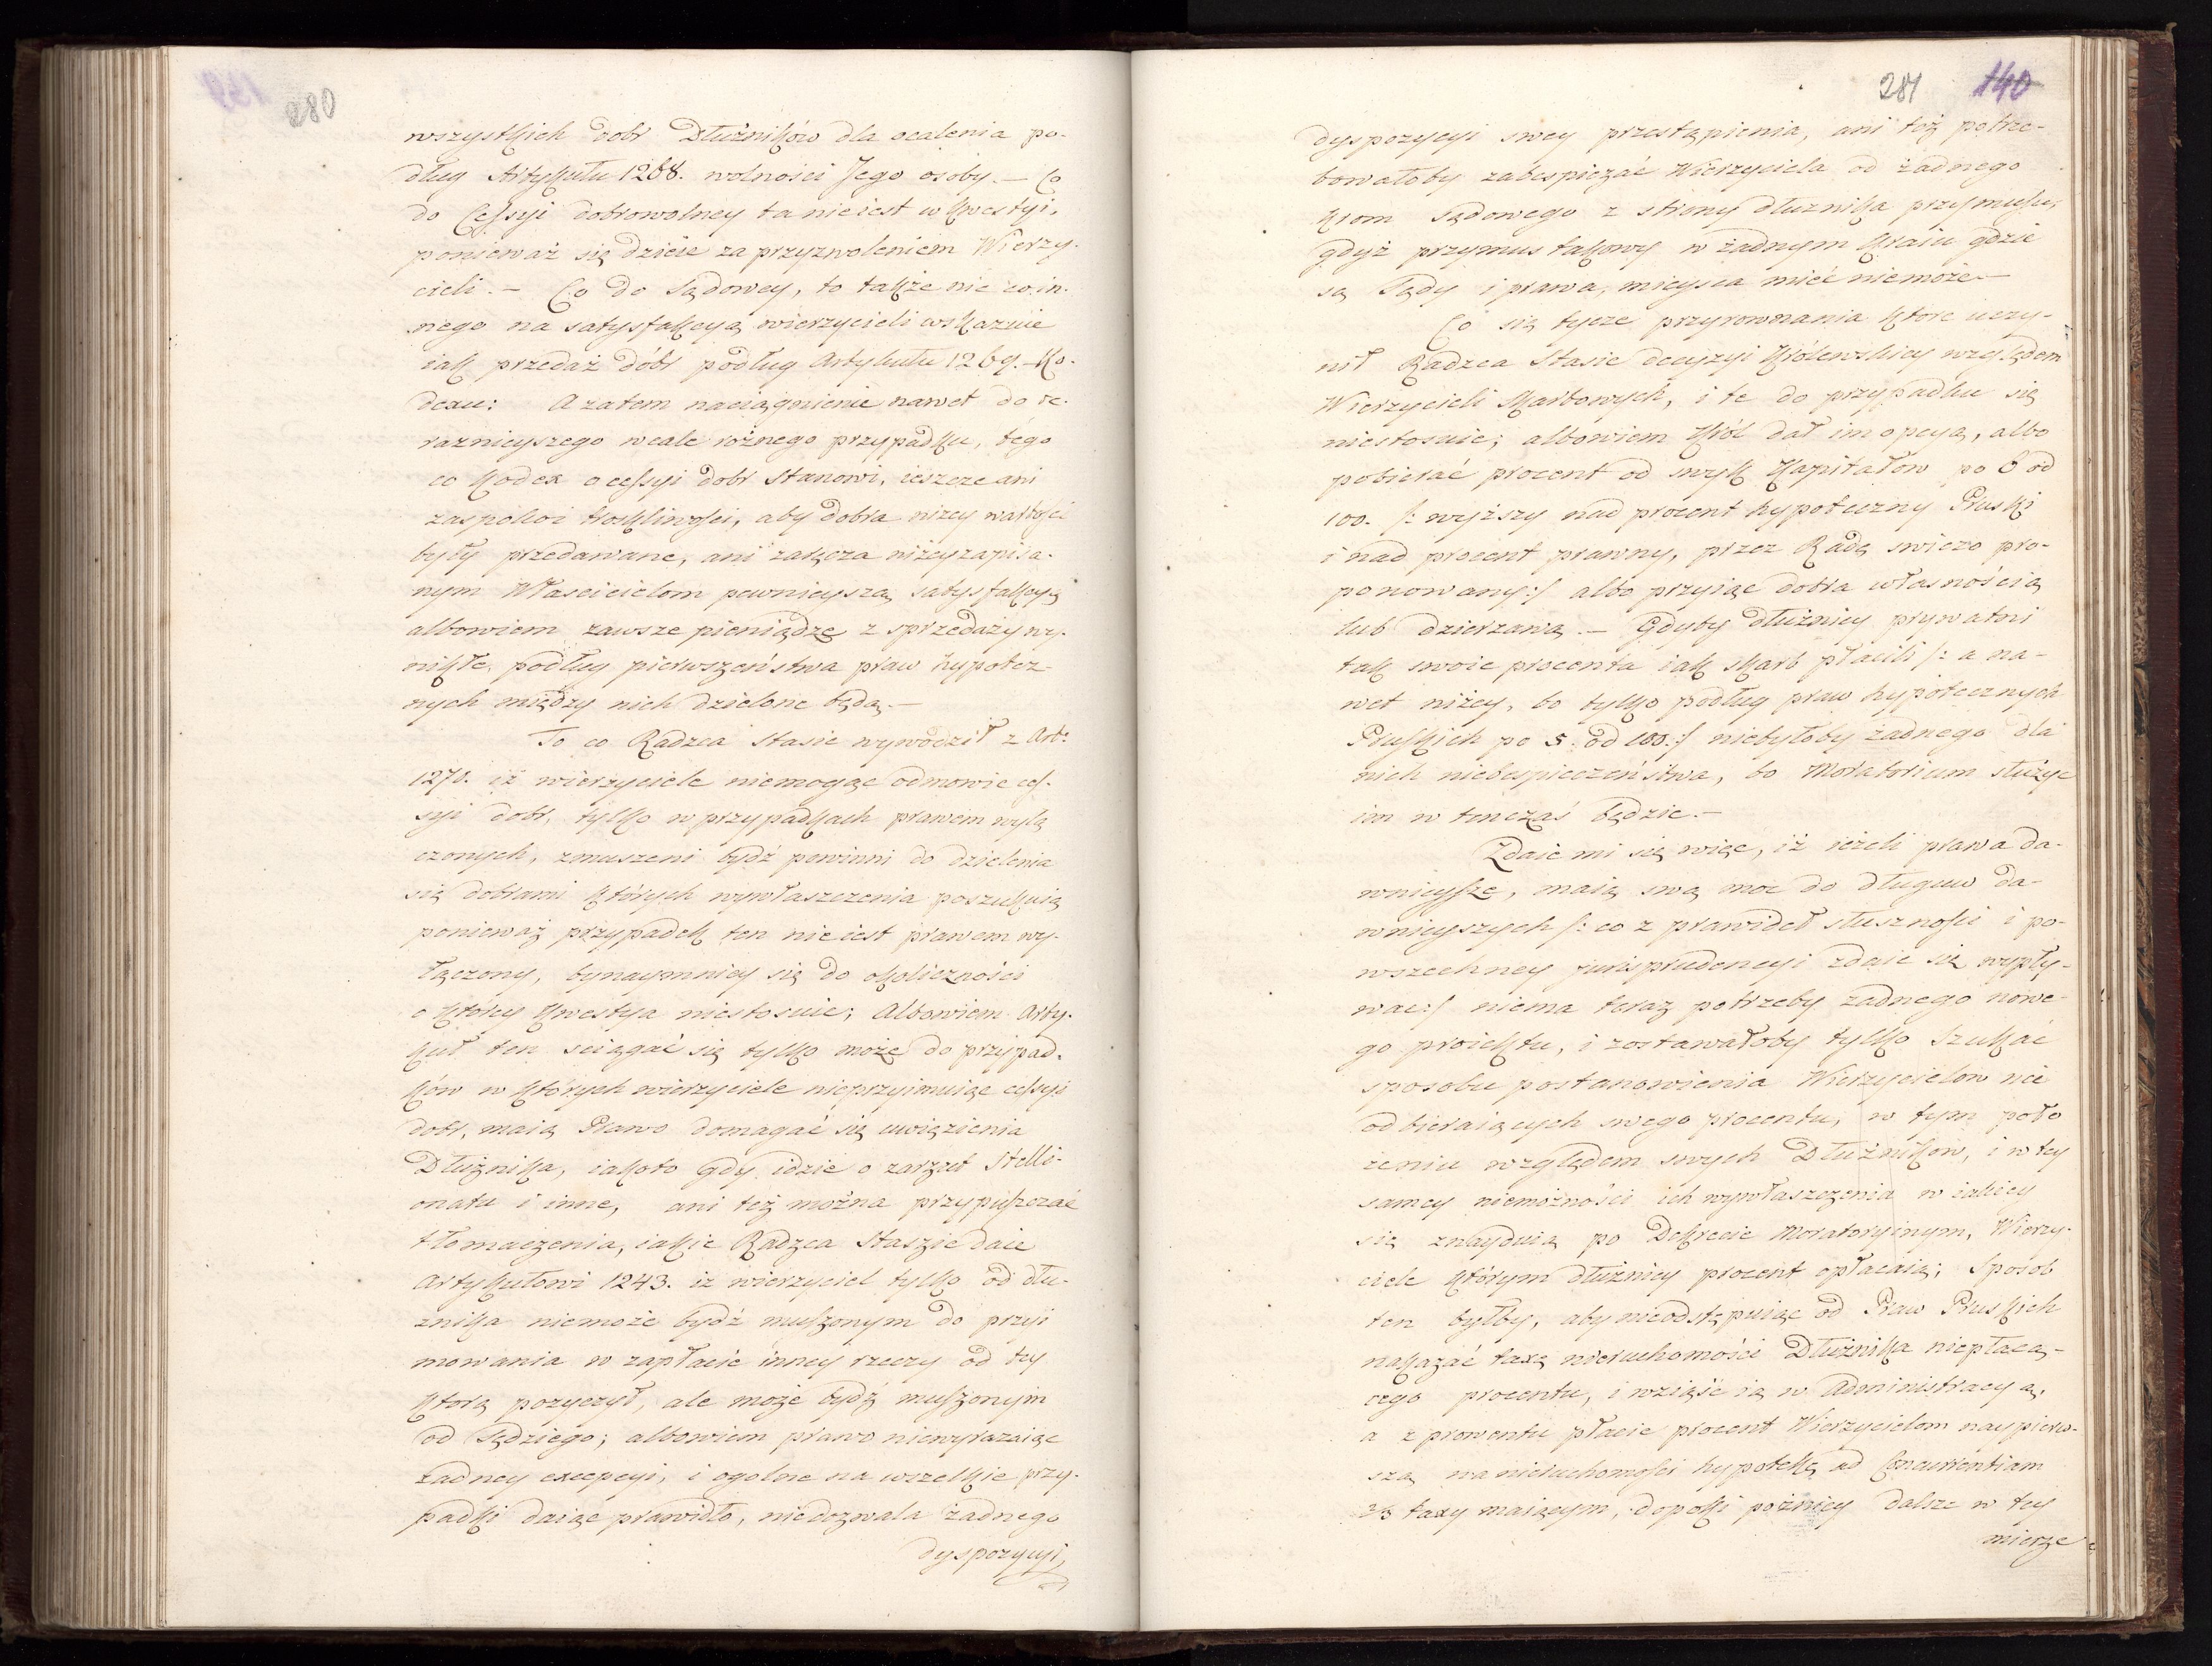 280
wszystkich dobr Dłużników dla ocalenia po-
dług Artykułu 1268. wolności Jego osoby. — Co
do Cessyi dobrowolney ta nieiest w kwestyi,
ponieważ się dzieie za przyzwoleniem Wierzy-
cieli. — Co do Sądowey, to także nic in-
nego na satysfakcyą wierzycieli wskazuie
iak przedaż dóbr podług Artykułu 1269. Ko-
dexu: A zatem naciągnienie nawet do te-
raznieyszego wcale rożnego przypadku, tego
co Kodex o cessyi dobr Stanowi, ieszcze ani
zaspokoi troskliwości, aby dobra niżey wartości
były przedawane, ani zaręcza niżey zapisa-
nym Właścicielom pewnieyszą satysfakcyą
albowiem zawsze pieniądze z sprzedaży wy-
nikłe, podług pierwszeństwa praw hypotecz-
nych między nich dzielone będą. —
To co Radzca Stasic wywodził z Art:
1270. iż wierzyciele niemogąc odmowic ces-
syi dobr, tylko w przypadkach prawem wyłą
czonych, zmuszeni bydź powinni do dzielenia
się dobrami których wywłaszczenia poszukuią
ponieważ przypadek ten nieiest prawem wy-
łączony, bynaymniey się do okoliczności
o którey kwestya niestosuie; Albowiem Arty-
kuł ten sciągać się tylko może do przypad-
ków w których wierzyciele nieprzyimuiąc cessyi
dobr, maią Prawo domagać się uwięzienia
Dłużnika, iakoto gdy idzie o zarzut Stelli-
onatu i inne, ani też można przypuszczać
tłomaczenia, iakie Radzca Staszic daie
Artykułowi 1243. iż wierzyciel tylko od dłu-
żnika niemoże bydź muszonym do przyi
mowania w zapłacie inney rzeczy od tey
ktorą pozyczył, ale może bydź muszonym
od Sędziego; albowiem prawo niewyrazaiąc
żadney excepcyi, i ogolne na wszelkie przy-
padki daiąc prawidło, niedozwala żadnego
dyspozycyi
281 140
dyspozycyi swey przestąpienia, ani też potrze-
bowałoby zabespieczać Wierzyciela od żadnego
krom Sądowego z strony dłużnika przymusu,
gdyż przymus takowy w żadnym kraiu gdzie
są Sądy i prawa, mieysca mieć niemoże —
Co się tycze przyrownania ktore uczy-
nił Radzca Stasic decyzyi Królewskiey względem
Wierzycieli Skarbowych, i te do przypadku się
niestosuie; albowiem Król dał im opcyą, albo
pobierać procent od swych Kapitałow po 6 od
100. /: wyższy nad procent hypoteczny Pruski
i nad procent prawny, przez Radę swiezo pro-
ponowany :/ albo przyiąc dobra własnością
lub dzierzawą. — Gdyby dłużnicy prywatni
tak swoie procenta iak skarb płacili /: a na-
wet niżey, bo tylko podług praw hypotecznych
Pruskich po 5. od 100. :/ niebyłoby żadnego dla
nich niebespieczeństwa, bo Moratorium służyc
im w tenczas będzie. —
Zdaie mi się więc, iż ieżeli prawa da-
wnieysze, maią swą moc do długów da-
wnieyszych /: co z prawideł słuszności i po-
wszechney jurisprudencyi zdaie się wypły-
wac :/ niema teraz potrzeby żadnego nowe-
go proiektu, i zostawałoby tylko szukać
sposobu postanowienia Wierzycielow nie
odbieraiących swego procentu, w tym poło
żeniu względem swych Dłużnikow, i w tey
samey niemożności ich wywłaszczenia w iakiey
się znayduią po Dekrecie Moratoryinym, Wierzy-
ciele którym dłużnicy procent opłacaią; Sposob
ten byłby, aby nieodstępuiąc od Praw Pruskich
nakazać taxę nieruchomości Dłużnika niepłacą-
cego procentu, i wziąść ią w Administracyą,
a z prowentu płacic procent Wierzycielom naypierw-
szą na nieruchomości hypotekę ad Concurrentiam
2/3 taxy maiącym, dopoki pożniey dalsze w tey
mierze